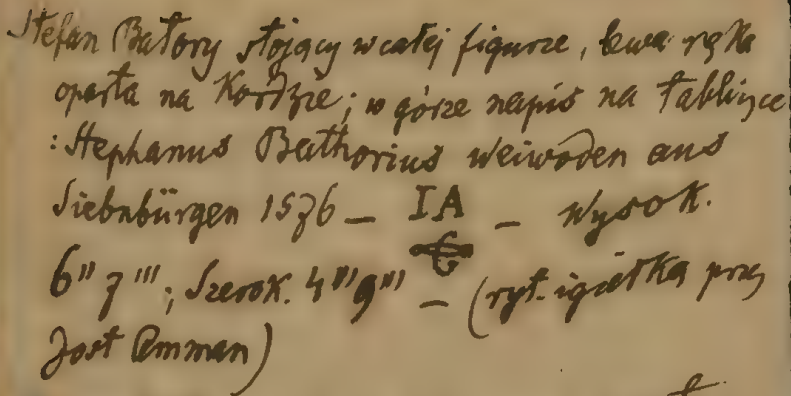 Stefan Batory stojący w całej figurze, lewa ręka
oparta na Kordzie; w górze napis na tabliczce
: Stephanus Bathorius Weiwoden aus
Siebnbürgen 1576 — IA — Wysok.
6" 7'''; Szerok. 4" 9''' — (ryt. igiełką przez
Jost Amman)